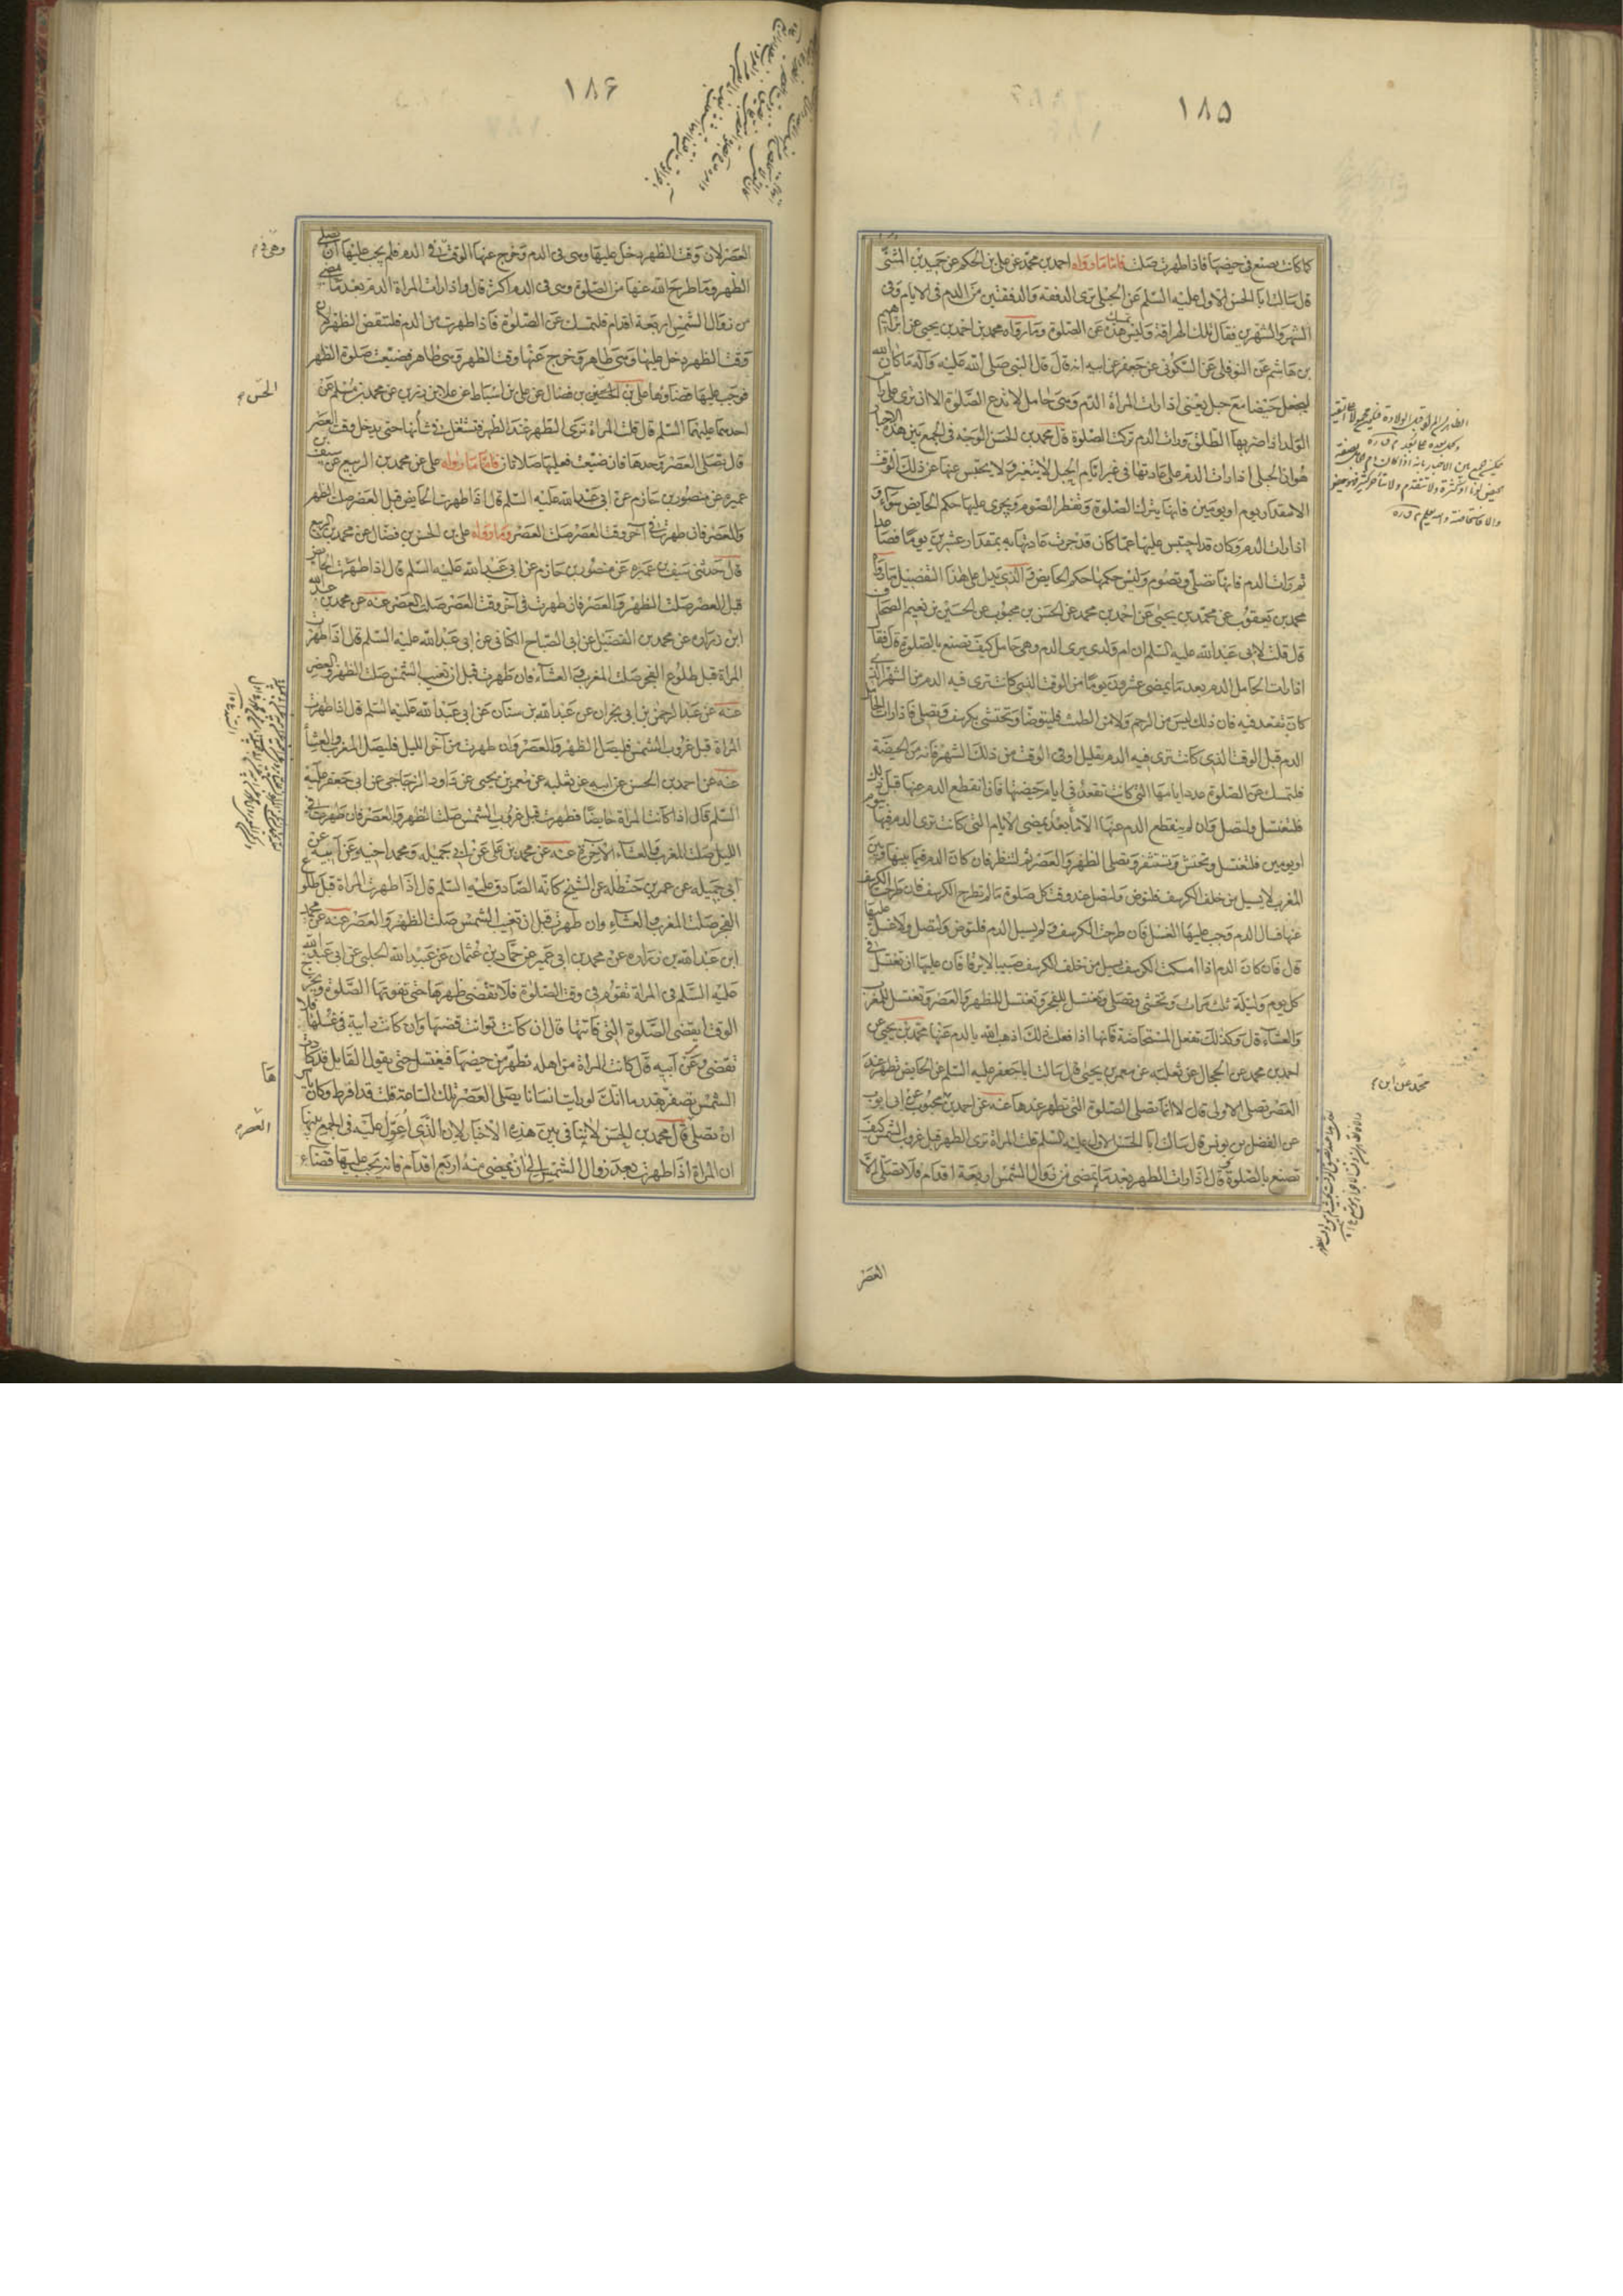 ١٨۵
كما كانت تصنع فى حيضها فاذا طهرت صلت فاما ما رواه احمد بن محمد عن على بن الحكم عن حميد بن المثنى
قال سالت ابا الحسن الاول عليه السلم عن الحبلى ترى الدفقة والدفقتين من الدم فى الايام وفى
الشهر والشهرين فقال تلك الهراقة وليس تمسك هذه عن الصلوة وما رواه محمد بن احمد بن يحيى عن ابرهيم
بن هاشم عن النوفلى عن السكونى عن جعفر عن ابيه انه قال قال النبى صلى الله عليه وآله ما كان الله
ليجعل حيضا مع حبل يعنى اذا رات المراة الدم وهى حامل لا تدع الصلوة الا ان ترى على راس
الولد اذا ضربها الطلق ورات الدم تركت الصلوة قال محمد بن الحسن الوجه فى الجمع بين هذه الاخبار
هو ان الحبلى اذا رات الدم على عادتها فى غير ايام الحبل لا يتغير ولا يحتبس عنها عن ذلك الوقت
الا مقدار يوم او يومين فانها تترك الصلوة وتفطر الصوم ويجرى عليها حكم الحايض سواء و
اذا رات الدم وكان قد احتبس عليها عما كان قد جرت عادتها به بمقدار عشرين يوما فصاعدا
ثم رات الدم فانها تصلى وتصوم وليس حكمها حكم الحايض والذى يدل على هذا التفصيل ما رواه
محمد بن يعقوب عن محمد بن يحيى عن احمد بن محمد عن الحسن بن محبوب عن الحسين بن نعيم الصحاف
قال قلت لابى عبد الله عليه السلم ان ام ولدى ترى الدم وهى حامل كيف تصنع بالصلوة قال فقال
اذا رات الحامل الدم بعد ما يمضى عشرون يوما من الوقت الذى كانت ترى فيه الدم من الشهر الذى
كانت تقعد فيه فان ذلك ليس من الرحم ولا من الطمث فليتوضا وتحتشى بكرسف وتصلى فاذا رات الحامل
الدم قبل الوقت الذى كانت ترى فيه الدم بقليل او فى الوقت من ذلك الشهر فانه من الحيضة
فلتمسك عن الصلوة عدد ايامها التى كانت تقعد فى ايام حيضها فان انقطع الدم عنها قبل ذلك
فلتغتسل ولتصل وان لم ينقطع الدم عنها الا بعد ما يمضى الايام التى كانت ترى الدم فيها بيوم
او يومين فلتغتسل وتحتش وتستثفر وتصلى الظهر والعصر ثم لتنظر فان كان الدم فيما بينها وبين
المغرب لا يسيل من خلف الكرسف فلتوض ولتصل عند وقت كل صلوة ما لم تطرح الكرسف فان طرحت الكرسف
عنها فسال الدم وجب عليها الغسل فان طرحت الكرسف ولم يسيل الدم فلتوض ولتصل ولا غسل عليها
قال فان كان الدم اذا امسكت الكرسف يسيل من خلف الكرسف صبيبا لا يرقا فان عليها ان تغتسل فى
كل يوم وليلة ثلث مرات وتحتشى وتصلى وتغتسل للفجر وتغتسل للظهر والعصر وتغتسل للمغرب
والعشاء قال وكذلك تفعل المستحاضة فانها اذا فعلت ذلك اذهب الله بالدم عنها محمد بن يحيى عن
احمد بن محمد عن الحجال عن ثعلبه عن معمر بن يحيى قال سالت ابا جعفر عليه السلم عن الحايض تطهر عند
العصر تصلى الاولى قال لا انما تصلى الصلوة التى تطهر عندها عنه عن احمد بن محبوب عن ابى ايوب
عن الفضل بن يونس قال سالت ابا الحسن الاول عليه السلم قلت المراة ترى الطهر قبل غروب الشمس كيف
تصنع بالصلوة قال اذا رات الطهر بعد ما يمضى من زوال الشمس اربعة اقدام فلا تصلى الا
محمد عن ابن
العصر
١٨۶
العصر لان وقت الظهر دخل عليها وهى فى الدم وخرج عنها الوقت فى الدم فلم يجب عليها ان تصلى
الظهر وما طرح الله عنها من الصلوة وهى فى الدم اكثر قال واذا رات المراة الدم بعد ما يمضى
من زوال الشمس اربعة اقدام فلتمسك عن الصلوة فاذا طهرت من الدم فلتقض الظهر لان
وقت الظهر دخل عليها وهى طاهر وخرج عنها وقت الظهر وهى طاهر فضيعت صلوة الظهر
فوجب عليها قضاوها على بن الحسين بن فضال عن على بن اسباط عن علا بن رزين عن محمد بن مسلم عن
احدهما عليهما السلم قال قلت المراة ترى الطهر عند الظهر فتشتغل فى شانها حتى يدخل وقت العصر
قال تصلى العصر وحدها فان ضيعت فعليها صلاتان فاما ما رواه على عن محمد بن الربيع عن سيف بن
عميره عن منصور بن حازم عن ابى عبد الله عليه السلم قال اذا طهرت الحايض قبل العصر صلت الظهر
والعصر فان طهرت فى آخر وقت العصر صلت العصر وما رواه على بن الحسن بن فضال عن محمد بن الربيع
قال حدثنى سيف بن عميره عن منصور بن حازم عن ابى عبد الله عليه السلم قال اذا طهرت الحايض
قبل العصر صلت الظهر والعصر فان طهرت فى آخر وقت العصر صلت العصر عنه عن محمد بن عبد الله
ابن زراره عن محمد بن الفضيل عن ابى الصباح الكنانى عن ابى عبد الله عليه السلم قال اذا طهرت
المراة قبل طلوع الفجر صلت المغرب والعشاء فان طهرت قبل ان تغيب الشمس صلت الظهر والعصر
عنه عن عبد الرحمن بن ابى نجران عن عبد الله بن سنان عن ابى عبد الله عليه السلم قال اذا طهرت
المراة قبل غروب الشمس فليصل الظهر والعصر وان طهرت من آخر الليل فليصل المغرب والعشاء
عنه عن احمد بن الحسن عن ابيه عن ثعلبه عن معمر بن يحيى عن داود الزجاجى عن ابى جعفر عليه
السلم قال اذا كانت المراة حايضا فطهرت قبل غروب الشمس صلت الظهر والعصر فان طهرت فى
الليل صلت المغرب والعشاء الآخرة عنه عن محمد بن على عن ابى جميله ومحمد اخيه وعن ابيه عن
ابى جميله عن عمر بن حنظله عن الشيخ كانه الصادق عليه السلم قال اذا طهرت المراة قبل طلوع
الفجر صلت المغرب والعشاء وان طهرت قبل ان تغيب الشمس صلت الظهر والعصر عنه عن محمد
ابن عبد الله بن زراره عن محمد بن ابى عمير عن حماد بن عثمان عن عبيد الله الحلبى عن ابى عبد الله
عليه السلم فى المراة تقوم فى وقت الصلوة فلا تقضى طهرها حتى تفوتها الصلوة ويخرج
الوقت ايقضى الصلوة التى فاتتها قال ان كانت توانت قضتها وان كانت دايبة فى غسلها فلا
تقضى وعن ابيه قال كانت المراة من اهله تطهر من حيضها فيغتسل حتى يقول القايل قد كادت
الشمس تصفر بقدر ما انك لو رايت انسانا يصلى العصر تلك الساعة قلت قد افرط وكان يامر
ان تصلى قال محمد بن الحسن لا يتنافى بين هذه الاخبار لان الذى اعول عليه فى الجمع بينها
ان المراة اذا طهرت بعد زوال الشمس الى ان يمضى منه اربع اقدام فانه يجب عليها قضاء
الحسن
ها
العصر